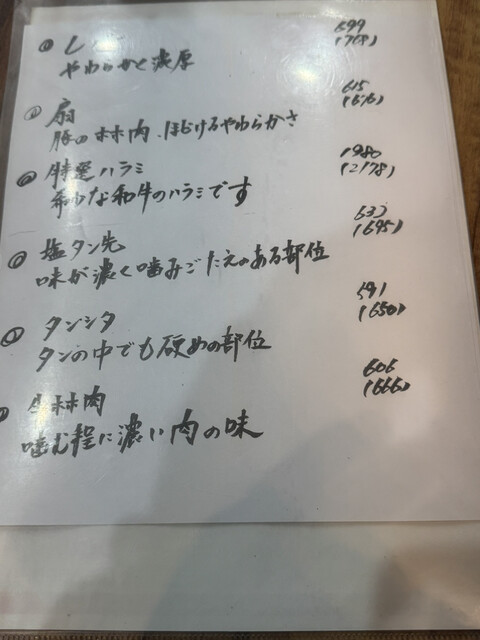 レバー 699
やわらかく濃厚 (768)
扇 615
豚のホホ肉、ほどけるやわらかさ (676)
特選ハラミ 1980
希少な和牛のハラミです (2178)
塩タン先 633
味が濃く噛みごたえのある部位 (695)
タンシタ 591
タンの中でも硬めの部位 (650)
牛ホホ肉 606
噛む程に濃い肉の味 (666)